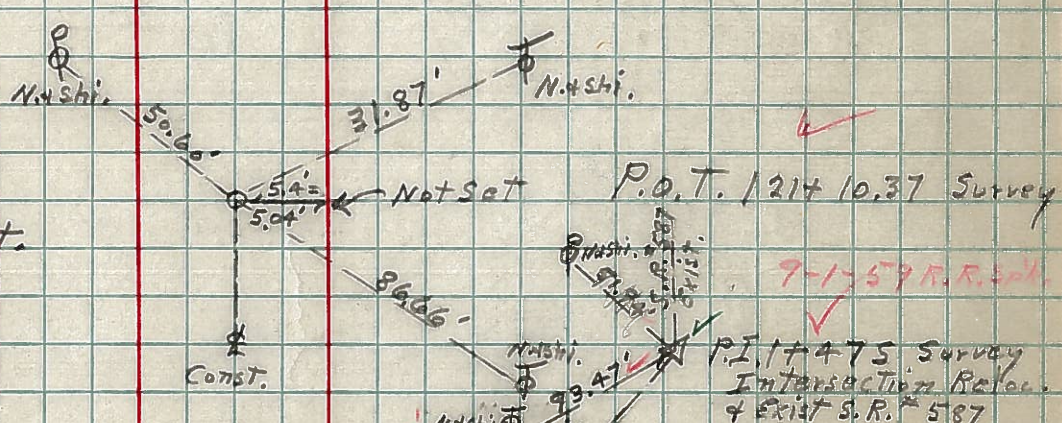 N.+Shi.
50.60'
31.87'
N.+Shi.
5.4'=
5.04'
Not Set
P.O.T. 121+10.37 Survey
t.
N.+Shi.
Exist.
9-1-59 R.R. Spk.
86.66'
Const.
N.+Shi.
93.47'
P.I. 1+475 Survey
Intersection Reloc.
& Exist S.R.# 587
N.+Shi.